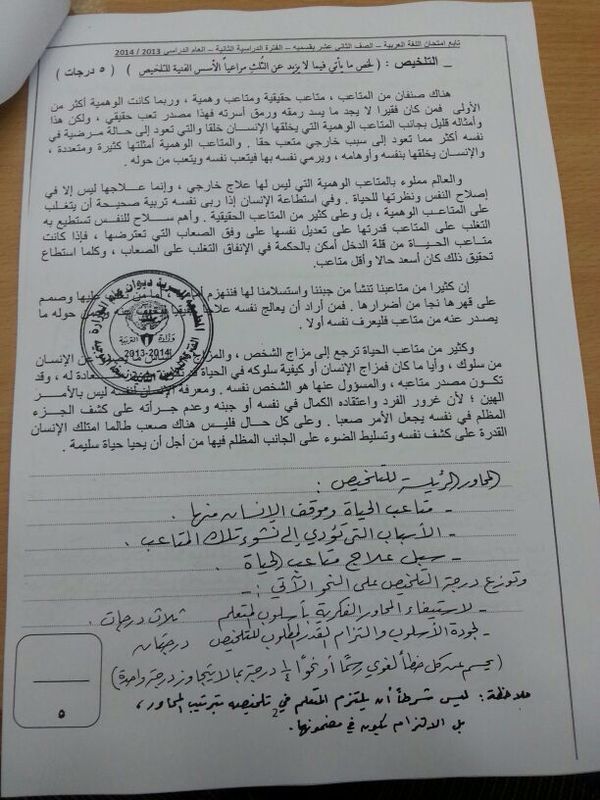 تابع امتحان اللغة العربية – الصف الثاني عشر بقسميه – الفترة الدراسية الثانية – العام الدراسي 2013 / 2014
_ التلخيص : ( لخص ما يأتي فيما لا يزيد عن الثلث مراعياً الأسس الفنية للتلخيص ) ( ٥ درجات )
هناك صنفان من المتاعب ، متاعب حقيقية ومتاعب وهمية ، وربما كانت الوهمية أكثر من
الأولى فمن كان فقيرا لا يجد ما يسد رمقه ورمق أسرته فهذا مصدر تعب حقيقي ، ولكن هذا
وأمثاله قليل بجانب المتاعب الوهمية التي يخلقها الإنسان خلقا والتي تعود إلى حالة مرضية في
نفسه أكثر مما تعود إلى سبب خارجي متعب حقا . والمتاعب الوهمية أمثلتها كثيرة ومتعددة ،
والإنسان يخلقها بنفسه وأوهامه ، ويرمي نفسه بها فيتعب نفسه ويتعب من حوله .
والعالم مملوء بالمتاعب الوهمية التي ليس لها علاج خارجي ، وإنما علاجها ليس إلا في
إصلاح النفس ونظرتها للحياة . وفي استطاعة الإنسان إذا ربى نفسه تربية صحيحة أن يتغلب
على المتاعب الوهمية ، بل وعلى كثير من المتاعب الحقيقية . وأهم سلاح للنفس تستطيع به
التغلب على المتاعب قدرتها على تعديل نفسها على وفق الصعاب التي تعترضها ، فإذا كانت
متاعب الحياة من قلة الدخل أمكن بالحكمة في الإنفاق التغلب على الصعاب ، وكلما استطاع
تحقيق ذلك كان أسعد حالا وأقل متاعب.
إن كثيرا من متاعبنا تنشأ من جبننا واستسلامنا لها فننهزم أمامها ، أما من عليها وصمم
على قهرها نجا من أضرارها . فمن أراد أن يعالج نفسه علاجا من حوله ما
يصدر عنه من متاعب فليعرف نفسه أولا .
وكثير من متاعب الحياة ترجع إلى مزاج الشخص ، والمزاج عن الإنسان
من سلوك ، وأيا ما كان فمزاج الإنسان أو كيفية سلوكه في الحياة له ، وقد
تكون مصدر متاعبه ، والمسؤول عنها هو الشخص نفسه . ومعرفة الإنسان لنفسه ليس بالأمر
الهين ؛ لأن غرور الفرد واعتقاده الكمال في نفسه أو جبنه وعدم جرأته على كشف الجزء
المظلم في نفسه يجعل الأمر صعبا . وعلى كل حال فليس هناك صعب طالما امتلك الإنسان
القدرة على كشف نفسه وتسليط الضوء على الجانب المظلم فيها من أجل أن يحيا حياة سليمة .
وزارة التربية
2013-2014
المحاور الرئيسة للتلخيص :
- متاعب الحياة وموقف الإنسان منها .
- الأسباب التي تؤدي إلى نشوء تلك المتاعب .
- سبل علاج متاعب الحياة .
وتوزع درجة التلخيص على النحو الآتي :-
- لاستيفاء المحاور الفكرية بأسلوب المتعلم ثلاث درجات .
- لجودة الأسلوب والتزام القدر المطلوب للتلخيص درجتان
( يحسم عن كل خطأ لغوي رسمًا أو نحوًا ¼ درجة بما لا يتجاوز درجة واحدة )
ملاحظة : ليس شرطًا أن يلتزم المتعلم في تلخيصه بترتيب المحاور ،
بل الالتزام يكون في مضمونها .
2
٥